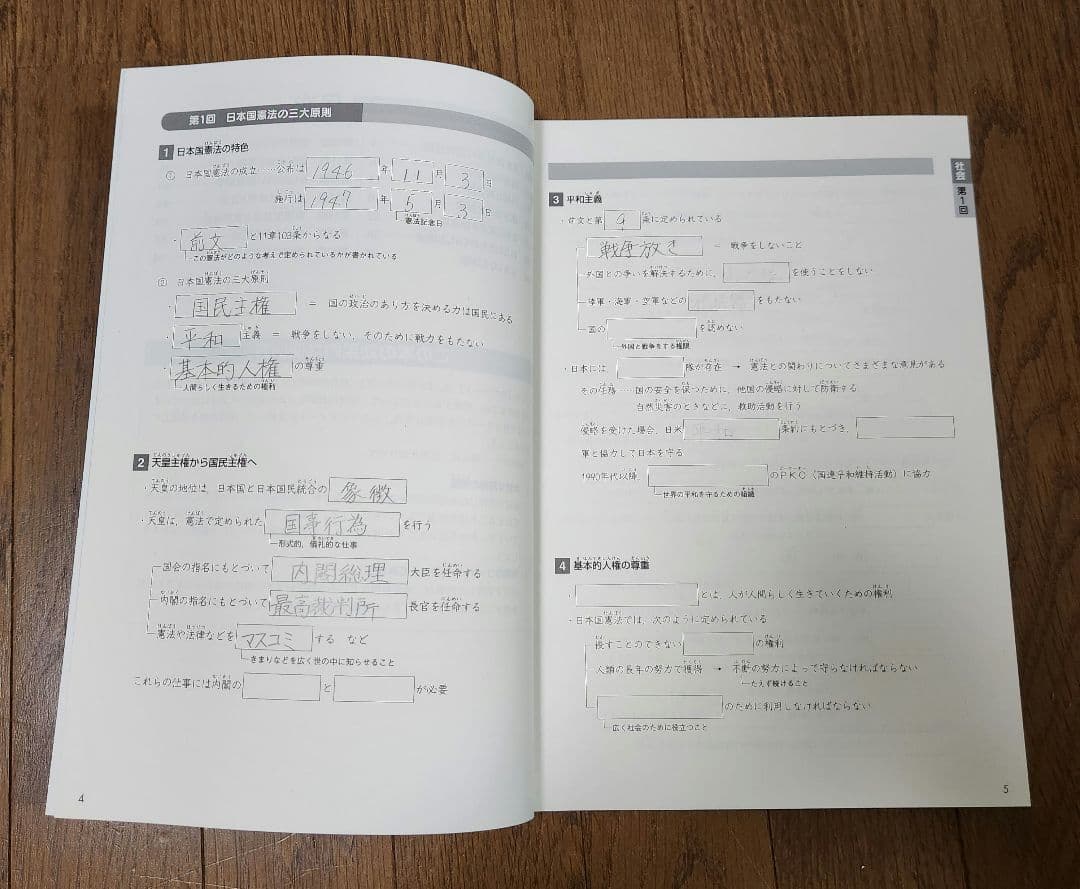 第1回 日本国憲法の三大原則
1 日本国憲法の特色
① 日本国憲法の成立……公布は 1946 年 11 月 3 日
施行は 1947 年 5 月 3 日
憲法記念日
・前文 と11章103条からなる
この憲法がどのような考えで定められているかが書かれている
② 日本国憲法の三大原則
・国民主権 = 国の政治のあり方を決める力は国民にある
・平和 主義 = 戦争をしない、そのために戦力をもたない
・基本的人権 の尊重
人間らしく生きるための権利
2 天皇主権から国民主権へ
・天皇の地位は、日本国と日本国民統合の 象徴
・天皇は、憲法で定められた 国事行為 を行う
形式的、儀礼的な仕事
国会の指名にもとづいて 内閣総理 大臣を任命する
内閣の指名にもとづいて 最高裁判所 長官を任命する
憲法や法律などを マスコミ する など
きまりなどを広く世の中に知らせること
これらの仕事には内閣の と が必要
4
社会 第1回
3 平和主義
・前文と第 9 条に定められている
戦争放き = 戦争をしないこと
外国との争いを解決するために、 を使うことをしない
陸軍・海軍・空軍などの をもたない
国の を認めない
外国と戦争をする権限
・日本には、 隊が存在 → 憲法との関わりについてさまざまな意見がある
その任務……国の安全を保つために、他国の侵略に対して防衛する
自然災害のときなどに、救助活動を行う
侵略を受けた場合、日米 条約にもとづき、
軍と協力して日本を守る
1990年代以降、 のPKO(国連平和維持活動)に協力
世界の平和を守るための組織
4 基本的人権の尊重
・ とは、人が人間らしく生きていくための権利
・日本国憲法では、次のように定められている
侵すことのできない の権利
人類の長年の努力で獲得 → 不断の努力によって守らなければならない
たえず続けること
のために利用しなければならない
広く社会のために役立つこと
5